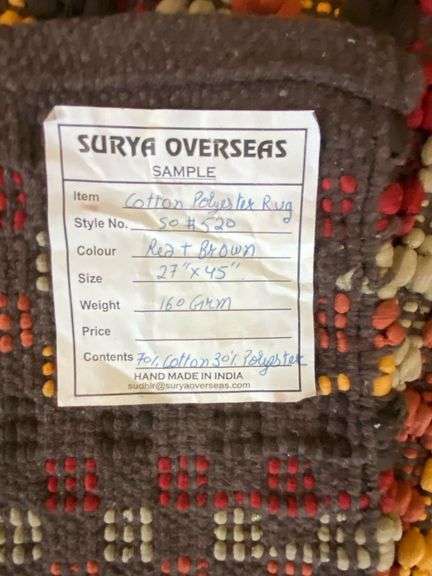 SURYA OVERSEAS
SAMPLE
Item Cotton Polyester Rug
Style No. SO # 520
Colour Red + Brown
Size 27" x 45"
Weight 160 Grm
Price
Contents 70% Cotton 30% Polyester
HAND MADE IN INDIA
sudhir@suryaoverseas.com